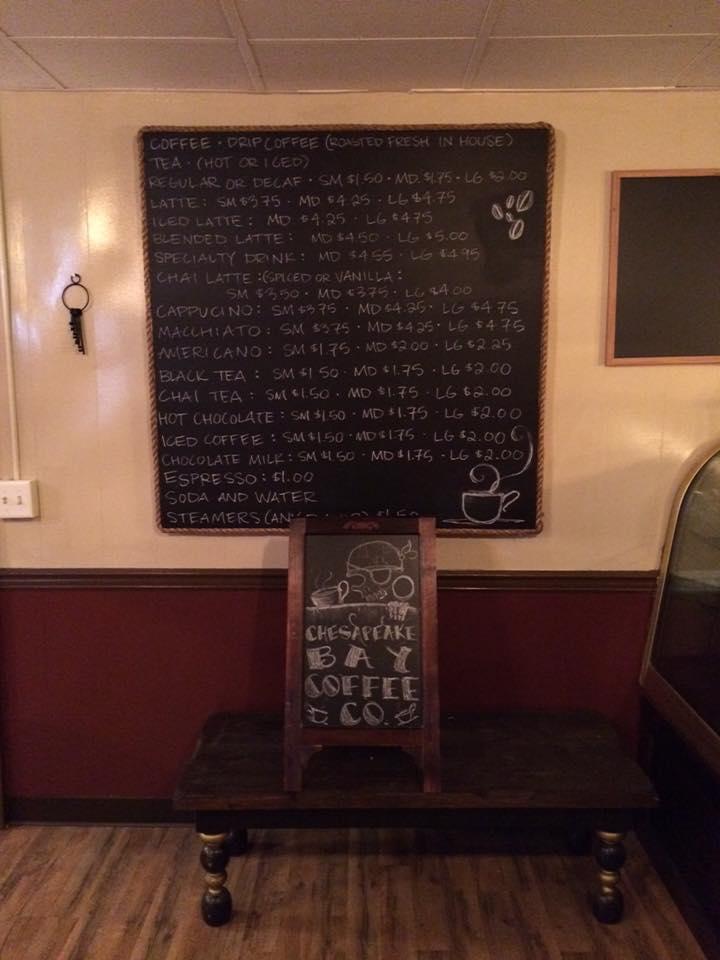 COFFEE · DRIP COFFEE (ROASTED FRESH IN HOUSE)
TEA · (HOT OR ICED)
REGULAR OR DECAF · SM $1.50 · MD. $1.75 · LG $2.00
LATTE: SM $3.75 · MD $4.25 · LG $4.75
ICED LATTE: MD $4.25 · LG $4.75
BLENDED LATTE: MD $4.50 · LG $5.00
SPECIALTY DRINK: MD $4.55 · LG $4.95
CHAI LATTE: (SPICED OR VANILLA:
SM $3.50 · MD $3.75 · LG $4.00
CAPPUCINO: SM $3.75 · MD $4.25 · LG $4.75
MACCHIATO: SM $3.75 · MD $4.25 · LG $4.75
AMERICANO: SM $1.75 · MD $2.00 · LG $2.25
BLACK TEA: SM $1.50 · MD $1.75 · LG $2.00
CHAI TEA: SM $1.50 · MD $1.75 · LG $2.00
HOT CHOCOLATE: SM $1.50 · MD $1.75 · LG $2.00
ICED COFFEE: SM $1.50 · MD $1.75 · LG $2.00
CHOCOLATE MILK: SM $1.50 · MD $1.75 · LG $2.00
ESPRESSO: $1.00
SODA AND WATER
STEAMERS $1.50
CHESAPEAKE
BAY
COFFEE
CO.